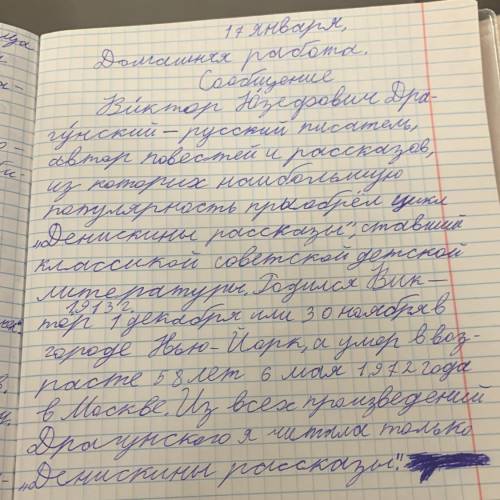 17 января.
Домашняя работа.
Сообщение
Ви́ктор Ю́зефович Дра-
гу́нский – русский писатель,
автор повестей и рассказов,
из которых наибольшую
популярность приобрёл цикл
„Денискины рассказы", ставший
классикой советской детской
литературы. Родился Вик-
1913г.
тор 1 декабря или 30 ноября в
городе Нью-Йорк, а умер в воз-
расте 58 лет 6 мая 1972 года
в Москве. Из всех произведений
Драгунского я читала только
„Денискины рассказы".